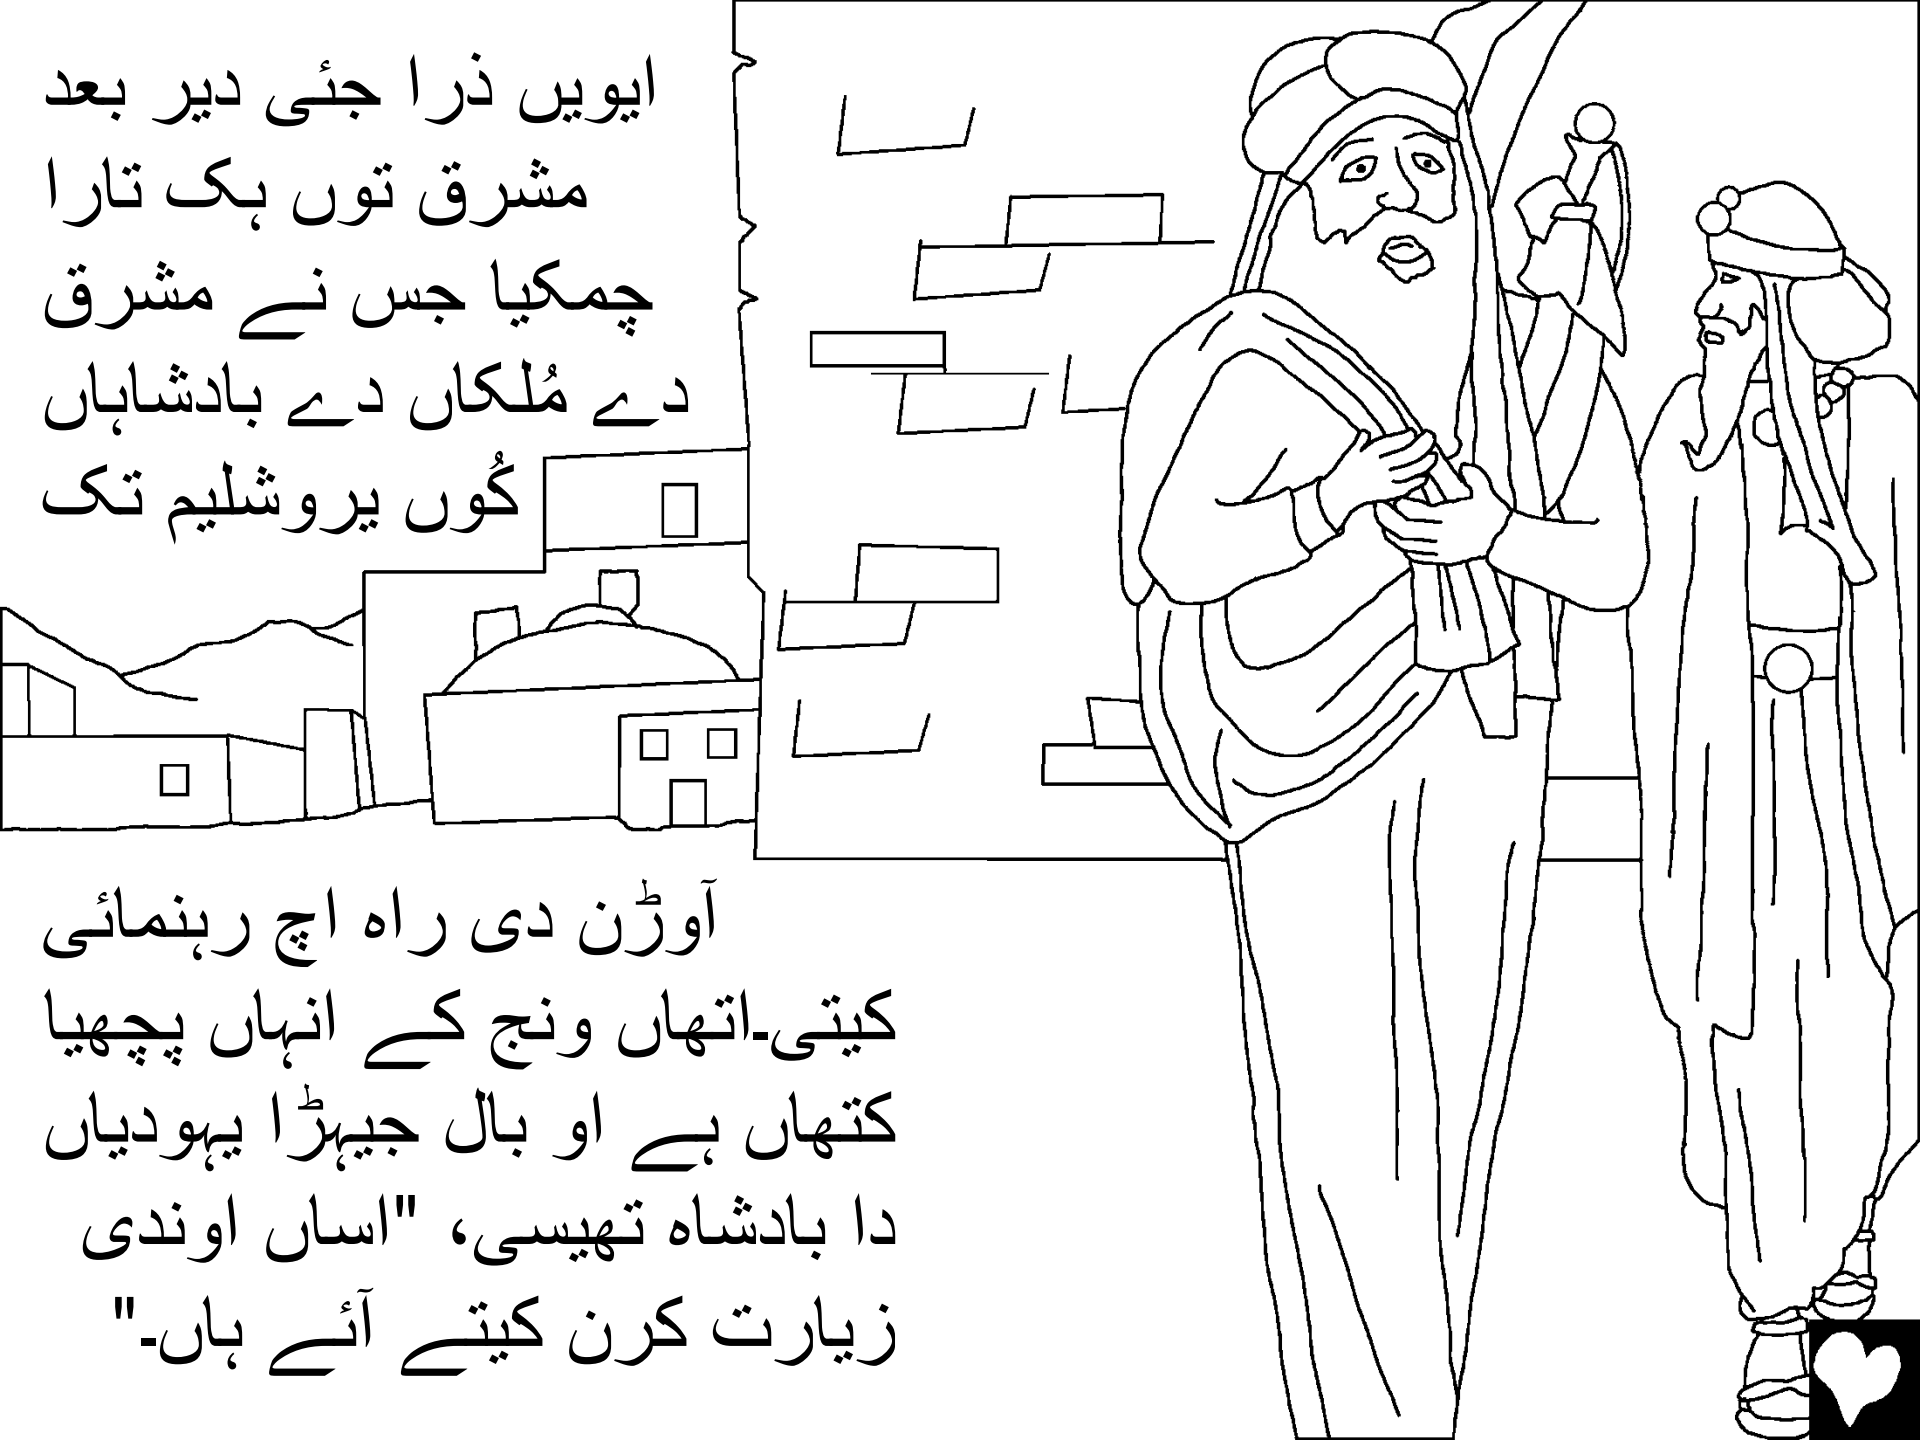 ایویں ذرا جئی دیر بعد
مشرق توں ہک تارا
چمکیا جس نے مشرق
دے مُلکاں دے بادشاہاں
کُوں یروشلیم تک
آوڑن دی راہ اچ رہنمائی
کیتی۔اتھاں ونج کے انہاں پچھیا
کتھاں ہے او بال جیہڑا یہودیاں
دا بادشاہ تھیسی، "اساں اوندی
زیارت کرن کیتے آئے ہاں۔"